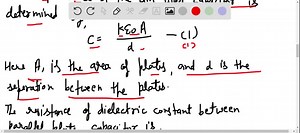 determined
C = kε₀A / d — (1)
(1)
Here A, is the area of plates, and d is the
separation between the plates.
The resistance of dielectric constant between
parallel plates capacitor is